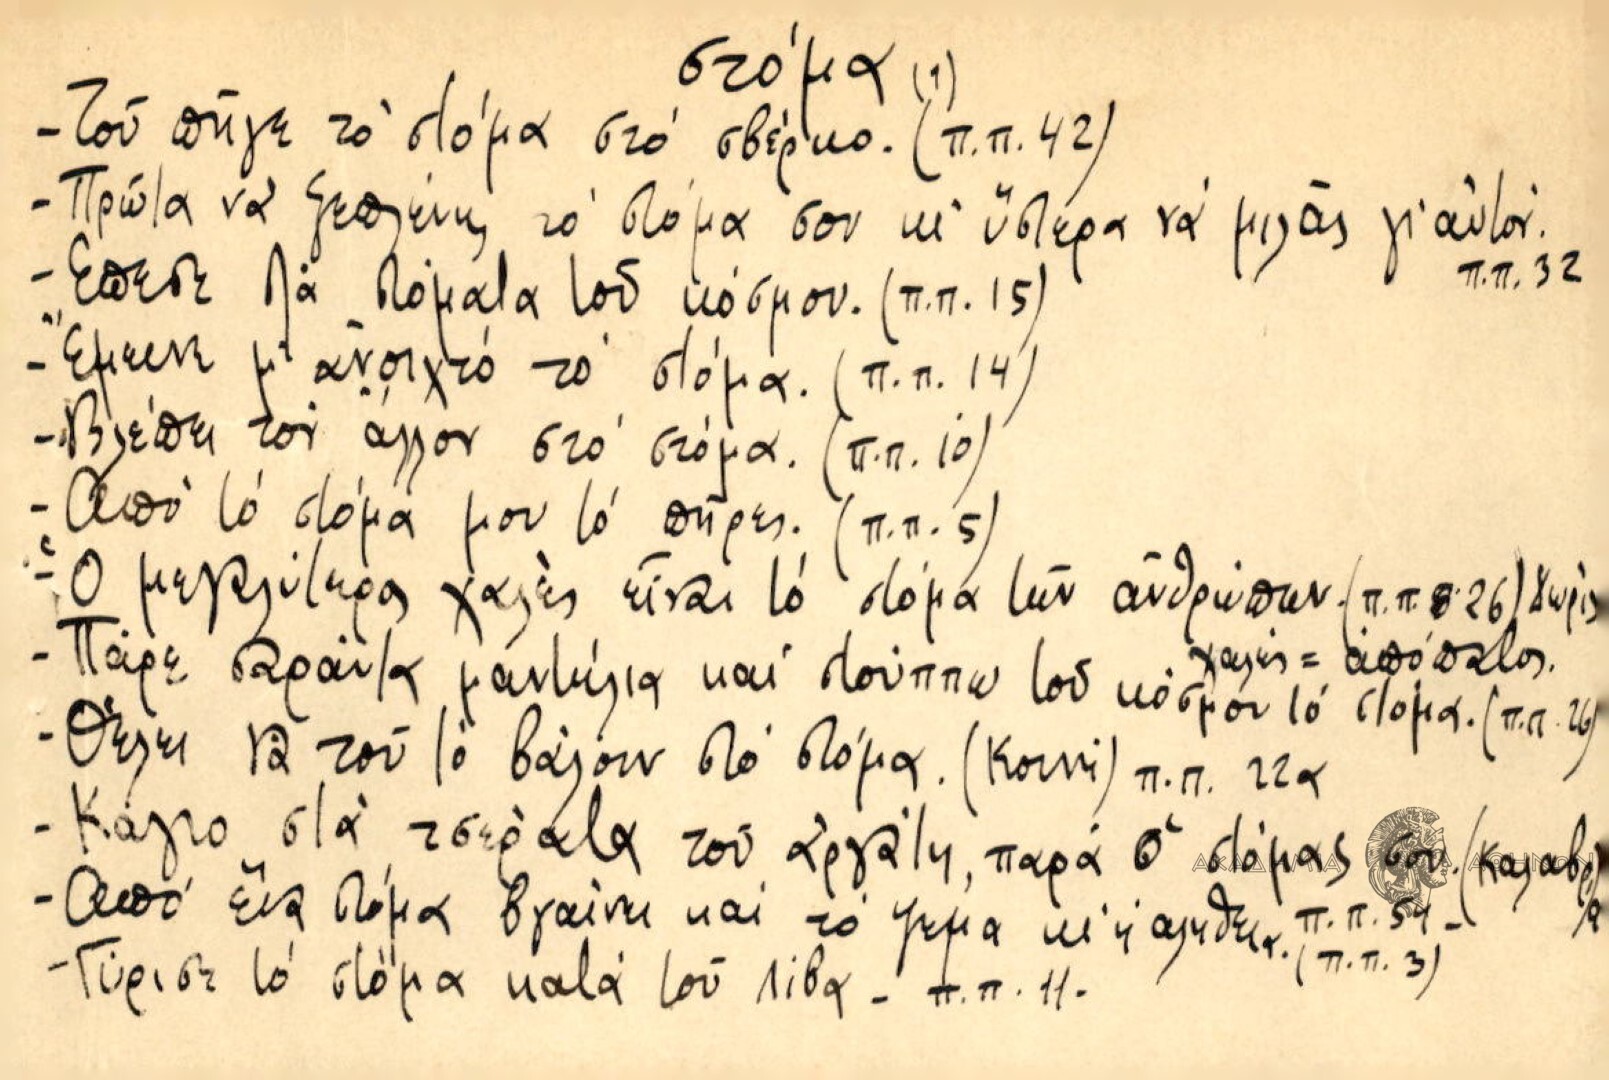 στόμα (1)
- Τοῦ πῆγε τὸ στόμα στό σβέρκο. (π.π. 42)
- Πρῶτα νὰ ξεπλένῃς τὸ στόμα σου κι' ὕστερα νά μιλᾶς γι' αὐτόν.
π.π. 32
- Ἔπεσε στὰ στόματα τοῦ κόσμου. (π.π. 15)
- Ἔμεινε μ' ἀνοιχτό τὸ στόμα. (π.π. 14)
- Βλέπει τὸν ἄλλον στό στόμα. (π.π. 10)
- Ἀπό τό στόμα μου τό πῆρες. (π.π. 5)
- Ὁ μεγαλύτερος χαλὲς εἶναι τό στόμα τῶν ἀνθρώπων. (π.π. 26) Χωρὶς
χαλὲς = ἀπόπατος.
- Πάρε σαράντα μαντήλια καί στούππω τοῦ κόσμου τό στόμα. (π.π. 26)
- Θέλει νὰ τοῦ τὸ βάλουν στὸ στόμα. (Κοινή) π.π. 22α
- Κάλιο στὰ τσερὰτα τοῦ ἀργάτη, παρά σ' στόμας σου. (Καλαβρ)
- Ἀπό ἕνα στόμα βγαίνει καί τό ψέμα κι' ἡ αλήθεια. π.π. 54 -
(π.π. 3)
- Γύρισε τό στόμα κατά τοῦ Λίβα - π.π. 11.
ΑΚΑΔΗΜΙΑ ΑΘΗΝΩΝ